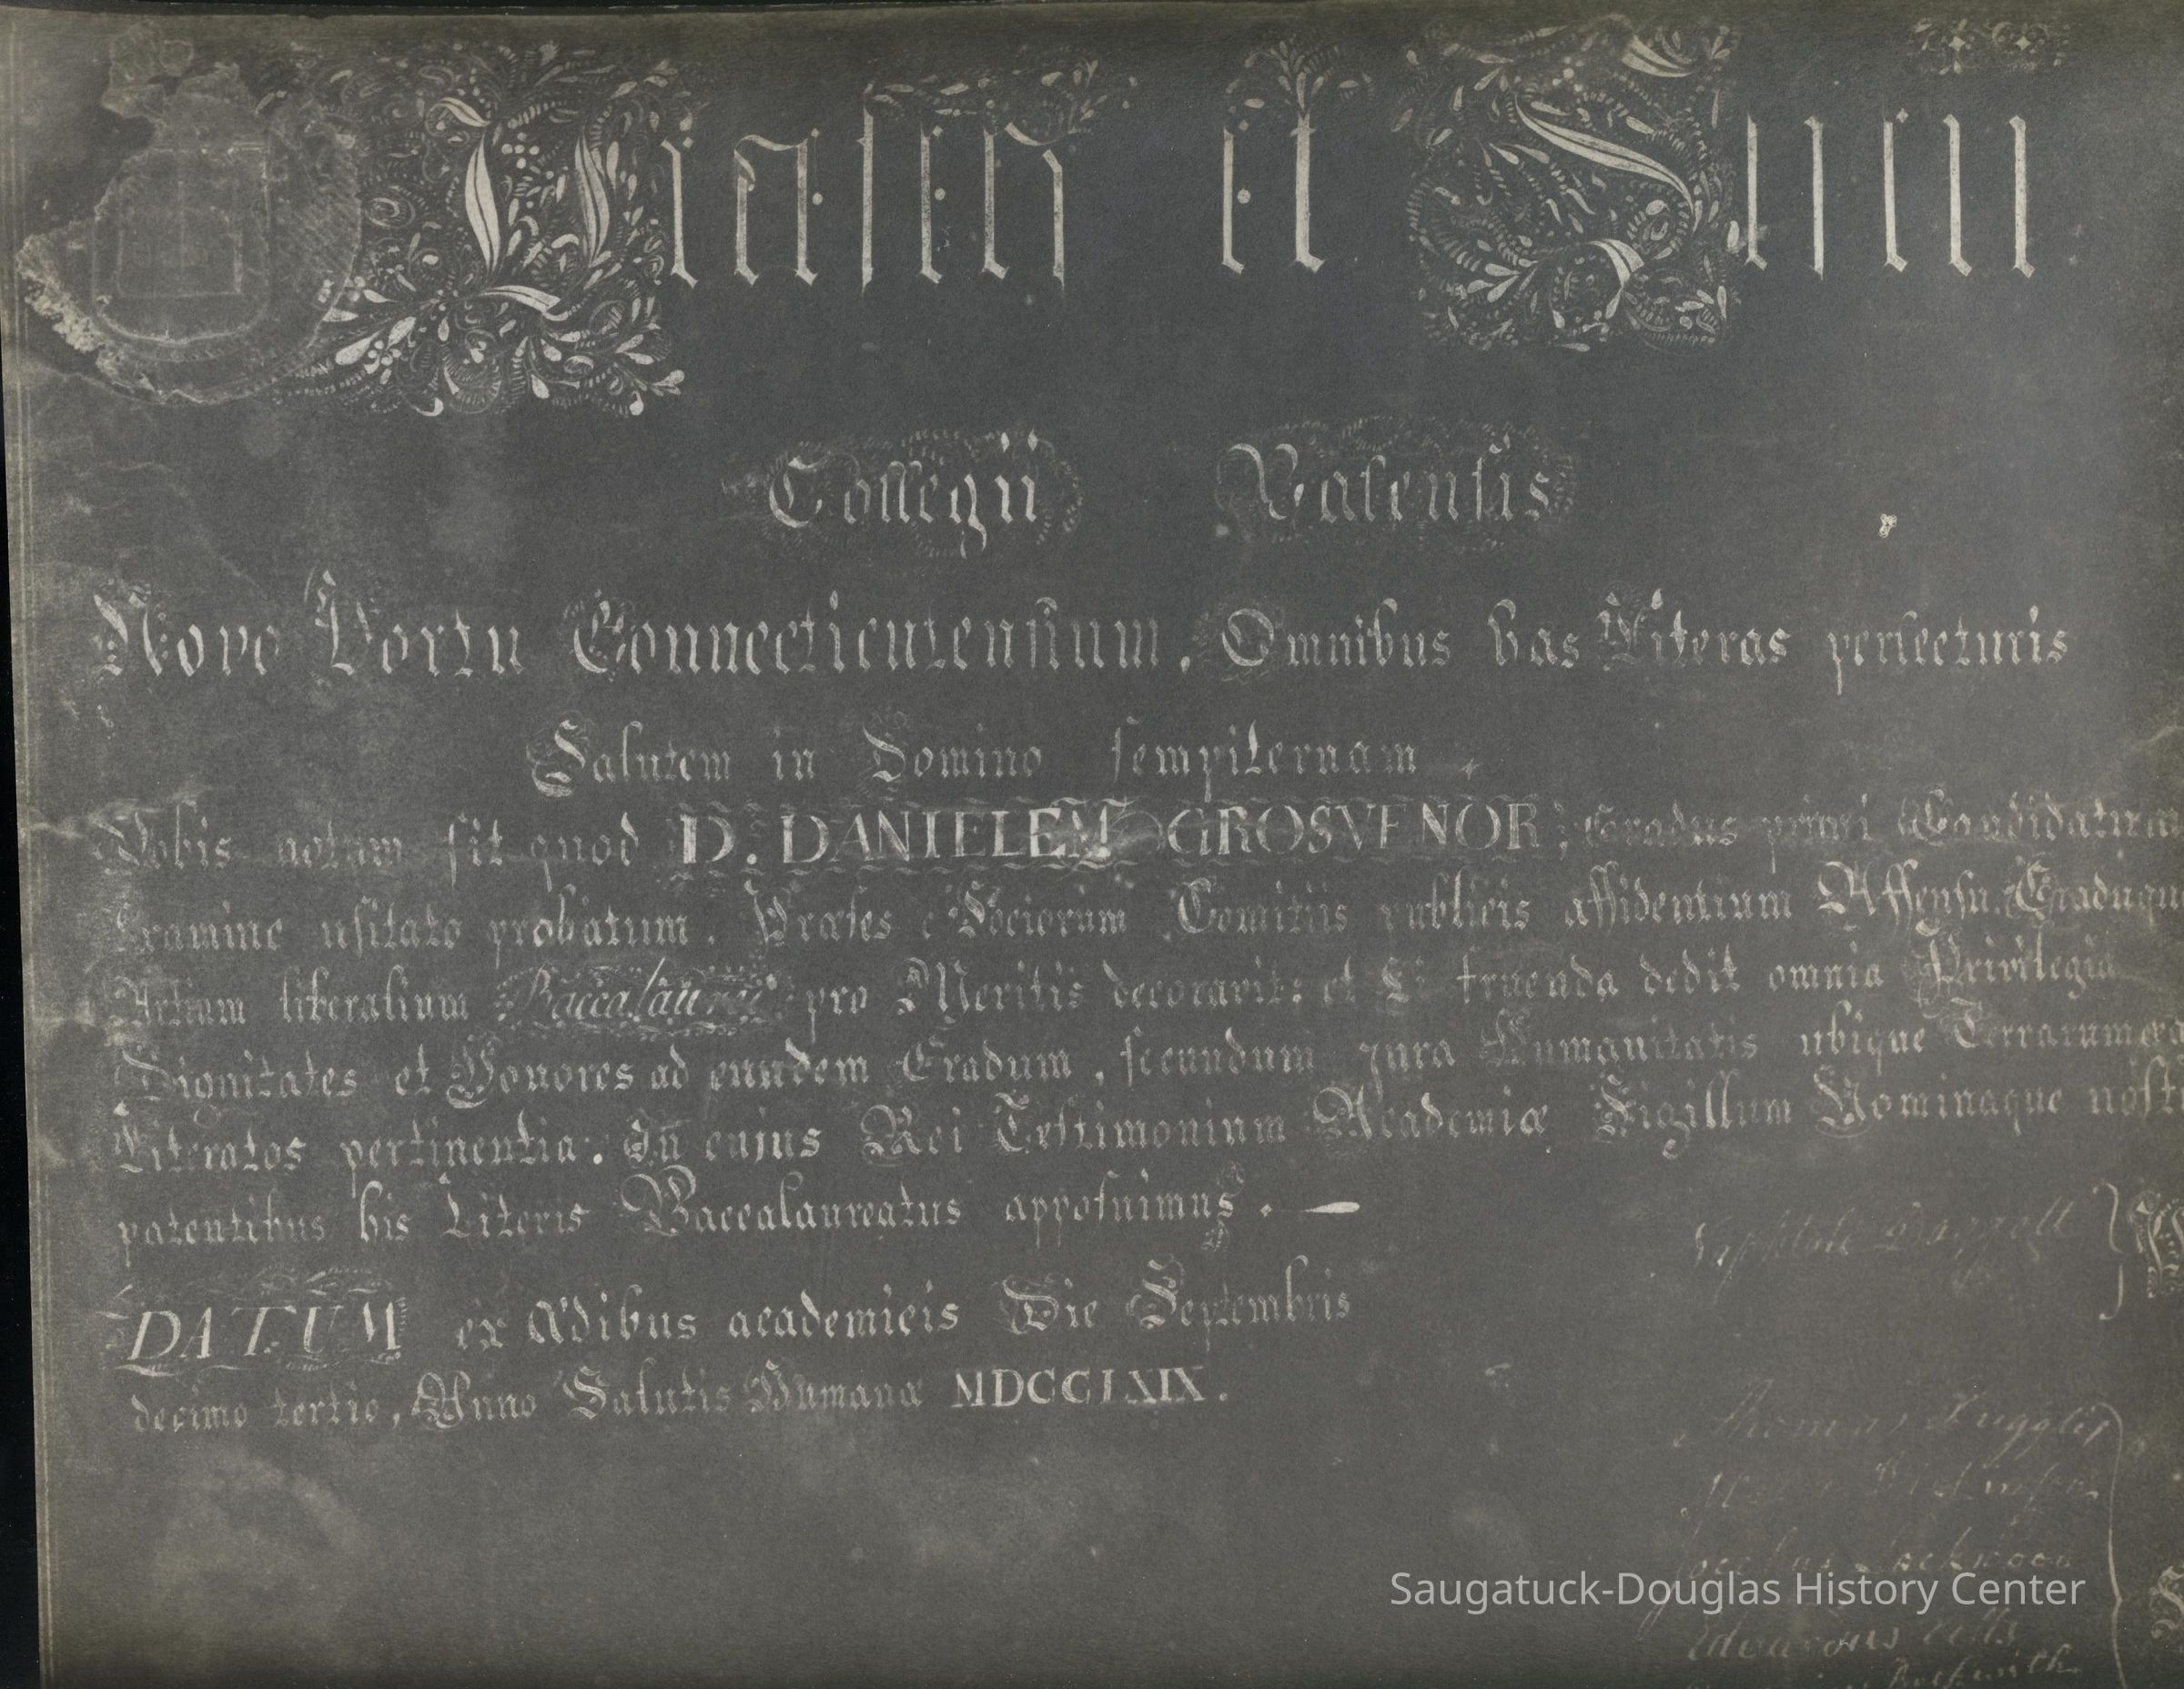 Præses et Socii
Collegii Yalensis
Novo Portu Connecticutensium, Omnibus has Literas perlecturis
Salutem in Domino sempiternam
Vobis notum sit quod D. DANIELEM GROSVENOR, Gradus primi Candidatum
Examine usitato probatum. Præses e Sociorum Comitiis publicis assidentium Assensu, Graduqu
Artium liberalium Baccalaurei pro Meritis decoravit: et Ei fruenda dedit omnia Privilegia
Dignitates et Honores ad eundem Gradum, secundum jura Humanitatis ubique Terrarum
Literatos pertinentia. In cujus Rei Testimonium Academiæ Sigillum Nominaque nost
patentibus his Literis Baccalaureatus apposuimus. —
Naphtali Daggett
DATUM ex Ædibus academicis Die Septembris
decimo tertio, Anno Salutis Humanæ MDCCLXIX.
Thomas Ruggles
Moses Dickinson
Lockwood
Saugatuck-Douglas History Center
Edwardus Eells